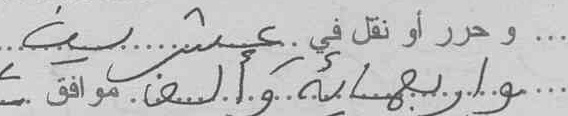 ... و حرر أو نقل في . عشرين ...
... وأربعمائة وألف . موافق ...